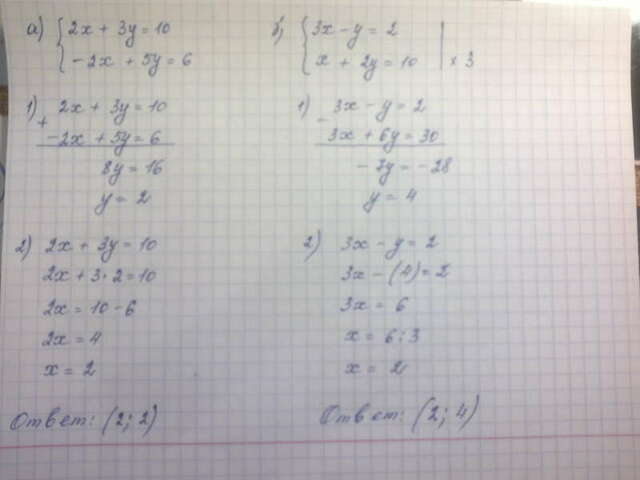 а) { 2x + 3y = 10
-2x + 5y = 6
1) 2x + 3y = 10
+
-2x + 5y = 6
8y = 16
y = 2
2) 2x + 3y = 10
2x + 3 · 2 = 10
2x = 10 - 6
2x = 4
x = 2
Ответ: (2; 2)
б) { 3x - y = 2
x + 2y = 10 | x 3
1) 3x - y = 2
-
3x + 6y = 30
-7y = -28
y = 4
2) 3x - y = 2
3x - (4) = 2
3x = 6
x = 6 : 3
x = 2
Ответ: (2; 4)